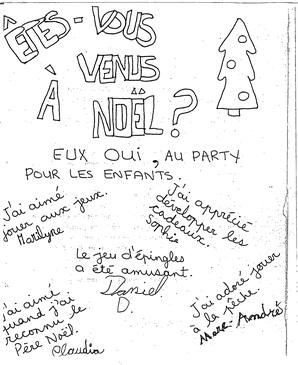 ÊTES-VOUS
VENUS
À NOËL?
EUX OUI, AU PARTY
POUR LES ENFANTS.
J'ai aimé
jouer aux jeux.
Marilyne
J'ai apprécié
développer les
cadeaux.
Sophie
Le jeu d'épingles
a été amusant.
Daniel
D.
J'ai aimé
quand j'ai
reconnu le
Père Noël.
Claudia
J'ai adoré jouer
à la pêche.
Marc-André